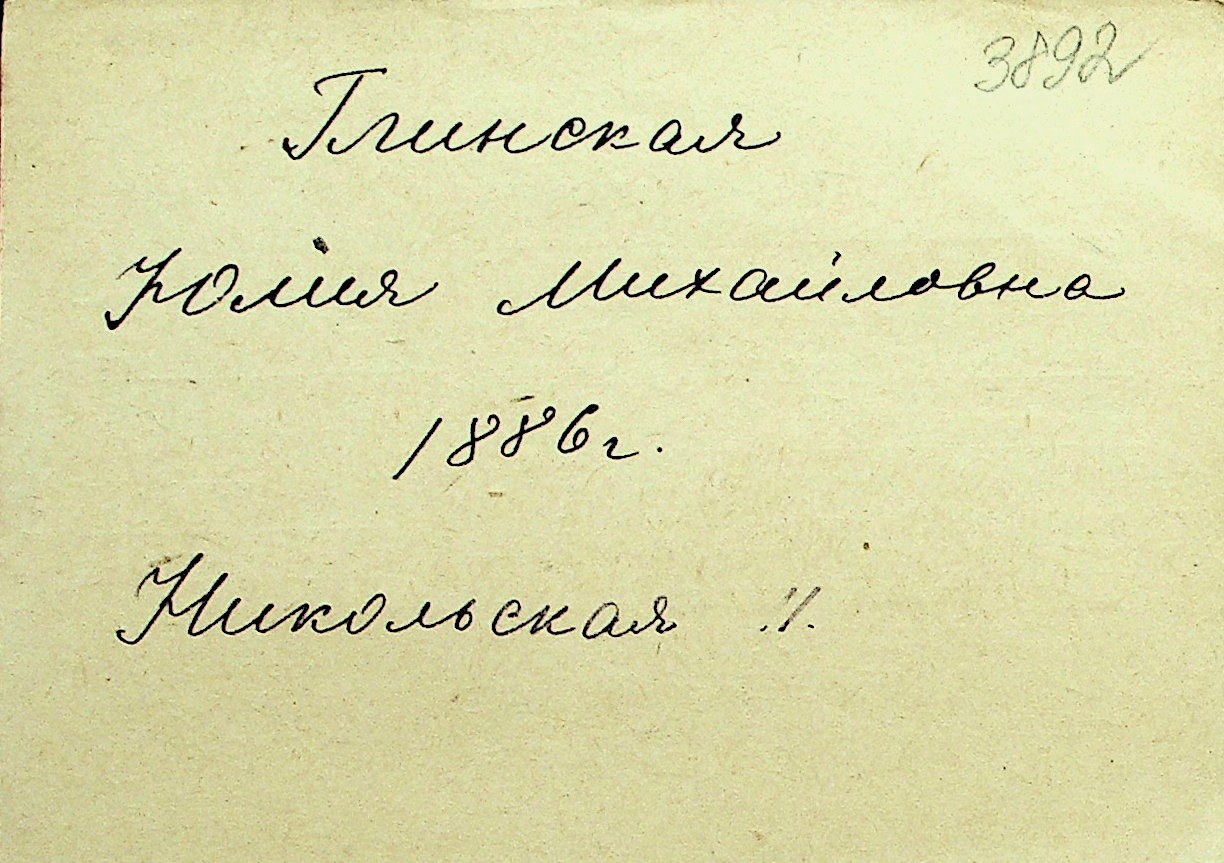 3892
Глинская
Юлия Михайловна
1886 г.
Никольская .//.